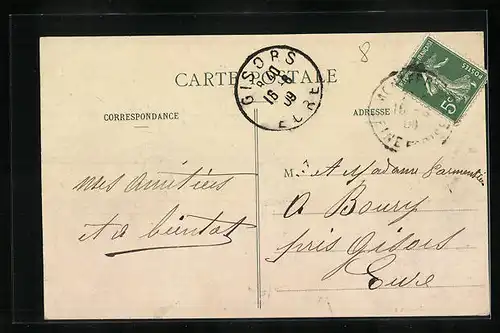 8
CARTE POSTALE
CORRESPONDANCE
ADRESSE
GISORS
8 40
16 -8
09
EURE
POSTES
5c
mes amitiés
et à bientôt
M. et Madame Parmentier
à Boury
près Gisors
Eure